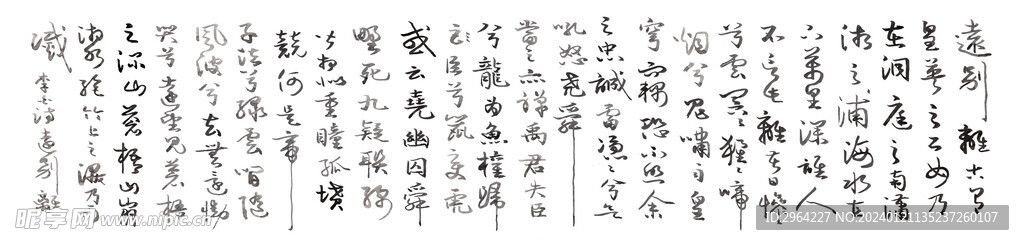 遠別離古有
皇英之二女乃
在洞庭之南瀟
湘之浦海水直
下萬里深誰人
不言此離苦日慘
兮雲冥冥猩猩啼
烟兮鬼嘯雨皇
穹竊恐不照余
之忠誠雷憑憑兮欲
吼怒堯舜
當之亦禪禹君失臣
兮龍為魚權歸
臣兮鼠變虎
或云堯幽囚舜
野死九疑聯綿
皆相似重瞳孤墳
竟何是帝
子泣兮綠雲間隨
風波兮去無還慟
哭兮遠望見蒼梧
之深山蒼梧山崩
湘水絕竹上之淚乃可
滅 李白詩遠別離
昵享网 www.nipic.cn
ID:2964227 NO:20240121135237260107